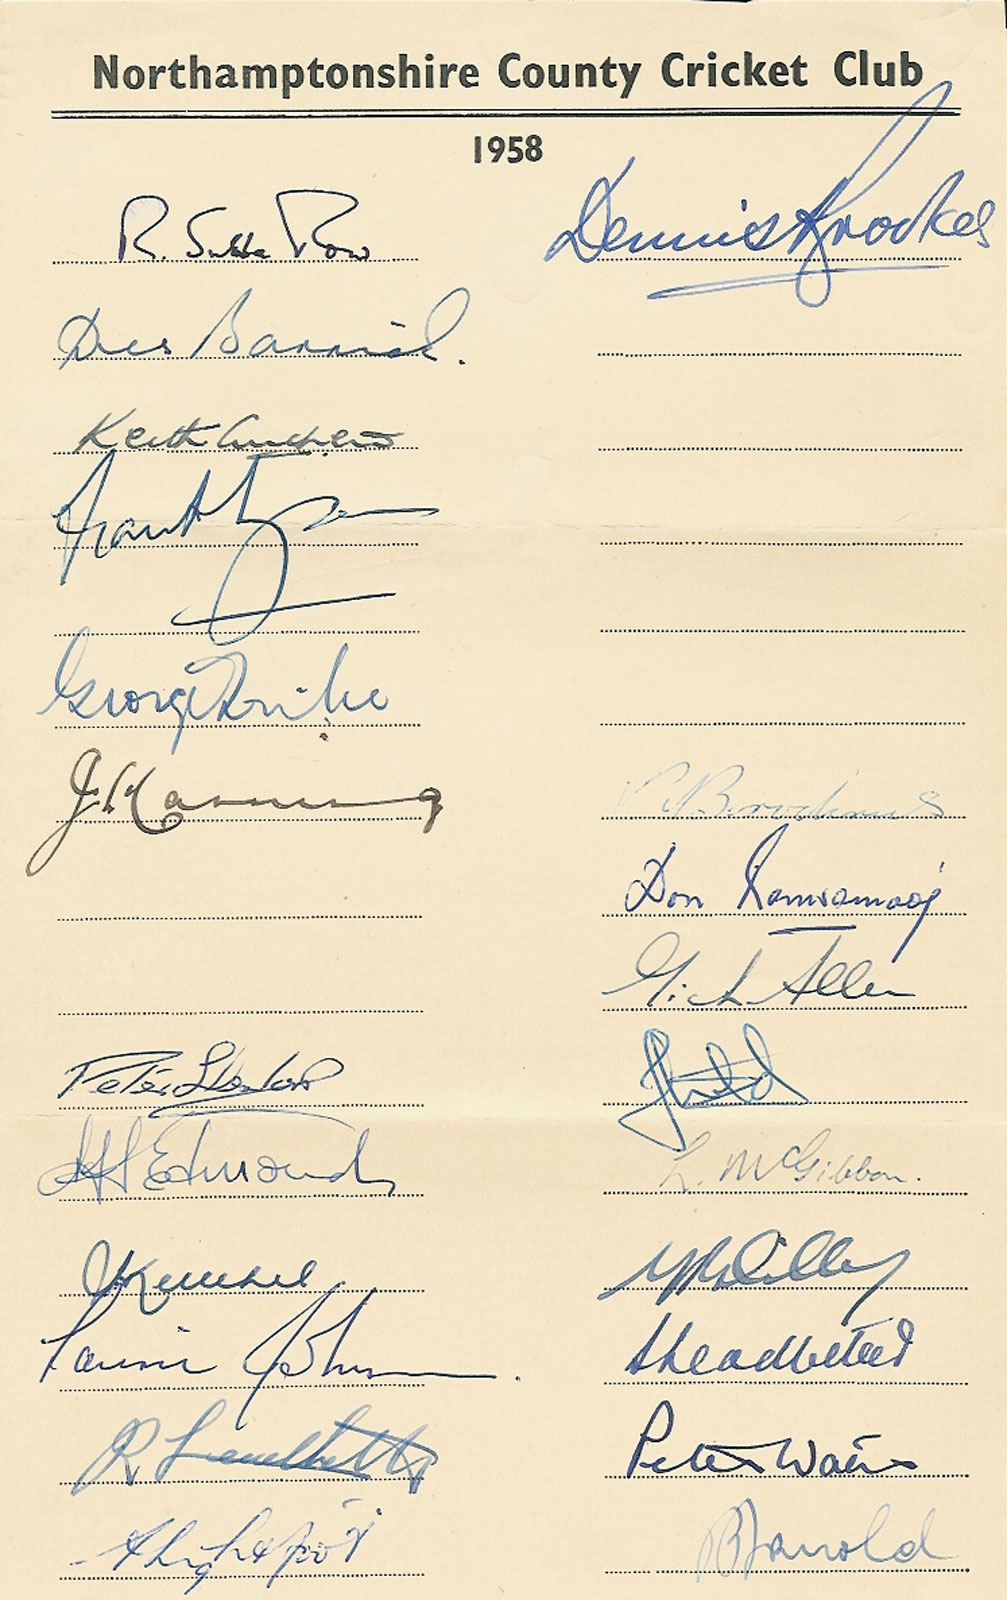 Northamptonshire County Cricket Club
1958
R. Subba Row
Dennis Brookes
Des Barrick.
Keith Andrew
Frank Tyson
George Tribe
J. Manning
P. Brookes
Don Ramsamooj
Mick Allen
Peter
Edmonds
L. McGibbon.
Laurie Johnson.
Peter Watts
A Lightfoot
B Arnold